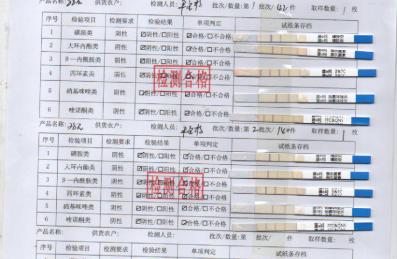 产品名称: 供货农户: 检测人员: 批次/数量:第 批次/ 件 取样数量: 1 枚
序号 检验项目 检测要求 检验结果 单项判定 试纸条存档
1 磺胺类 阴性 ☑阴性/□阳性 ☑合格/□不合格
2 大环内酯类 阴性 ☑阴性/□阳性 ☑合格/□不合格
3 β一内酰胺类 阴性 ☑阴性/□阳性 ☑合格/□不合格
4 四环素类 阴性 ☑阴性/□阳性 ☑合格/□不合格
5 硝基咪唑类 阴性 ☑阴性/□阳性 ☑合格/□不合格
6 喹诺酮类 阴性 ☑阴性/□阳性 ☑合格/□不合格
检测合格
产品名称: 供货农户: 检测人员: 批次/数量:第 2 批次/ 件 取样数量: 1 枚
序号 检验项目 检测要求 检验结果 单项判定 试纸条存档
1 磺胺类 阴性 ☑阴性/□阳性 ☑合格/□不合格
2 大环内酯类 阴性 ☑阴性/□阳性 ☑合格/□不合格
3 β一内酰胺类 阴性 ☑阴性/□阳性 ☑合格/□不合格
4 四环素类 阴性 ☑阴性/□阳性 ☑合格/□不合格
5 硝基咪唑类 阴性 ☑阴性/□阳性 ☑合格/□不合格
6 喹诺酮类 阴性 ☑阴性/□阳性 ☑合格/□不合格
检测合格
产品名称: 供货农户: 检测人员: 批次/数量:第 批次/ 件 取样数量: 枚
序号 检验项目 检测要求 检验结果 单项判定 试纸条存档